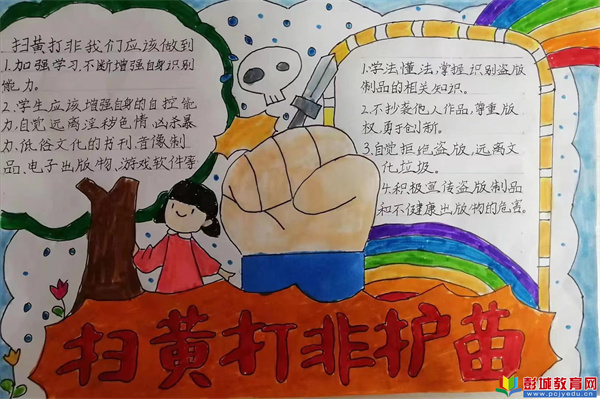 扫黄打非我们应该做到
1.加强学习,不断增强自身识别
能力。
2.学生应该增强自身的自控能
力,自觉远离淫秽色情、凶杀暴
力、低俗文化的书刊、音像制
品、电子出版物、游戏软件等
1.学法懂法,掌握识别盗版
制品的相关知识。
2.不抄袭他人作品,尊重版
权,勇于创新。
3.自觉拒绝盗版,远离文
化垃圾。
4.积极宣传盗版制品
和不健康出版物的危害。
扫黄打非护苗
彭城教育网
www.pcjyedu.cn